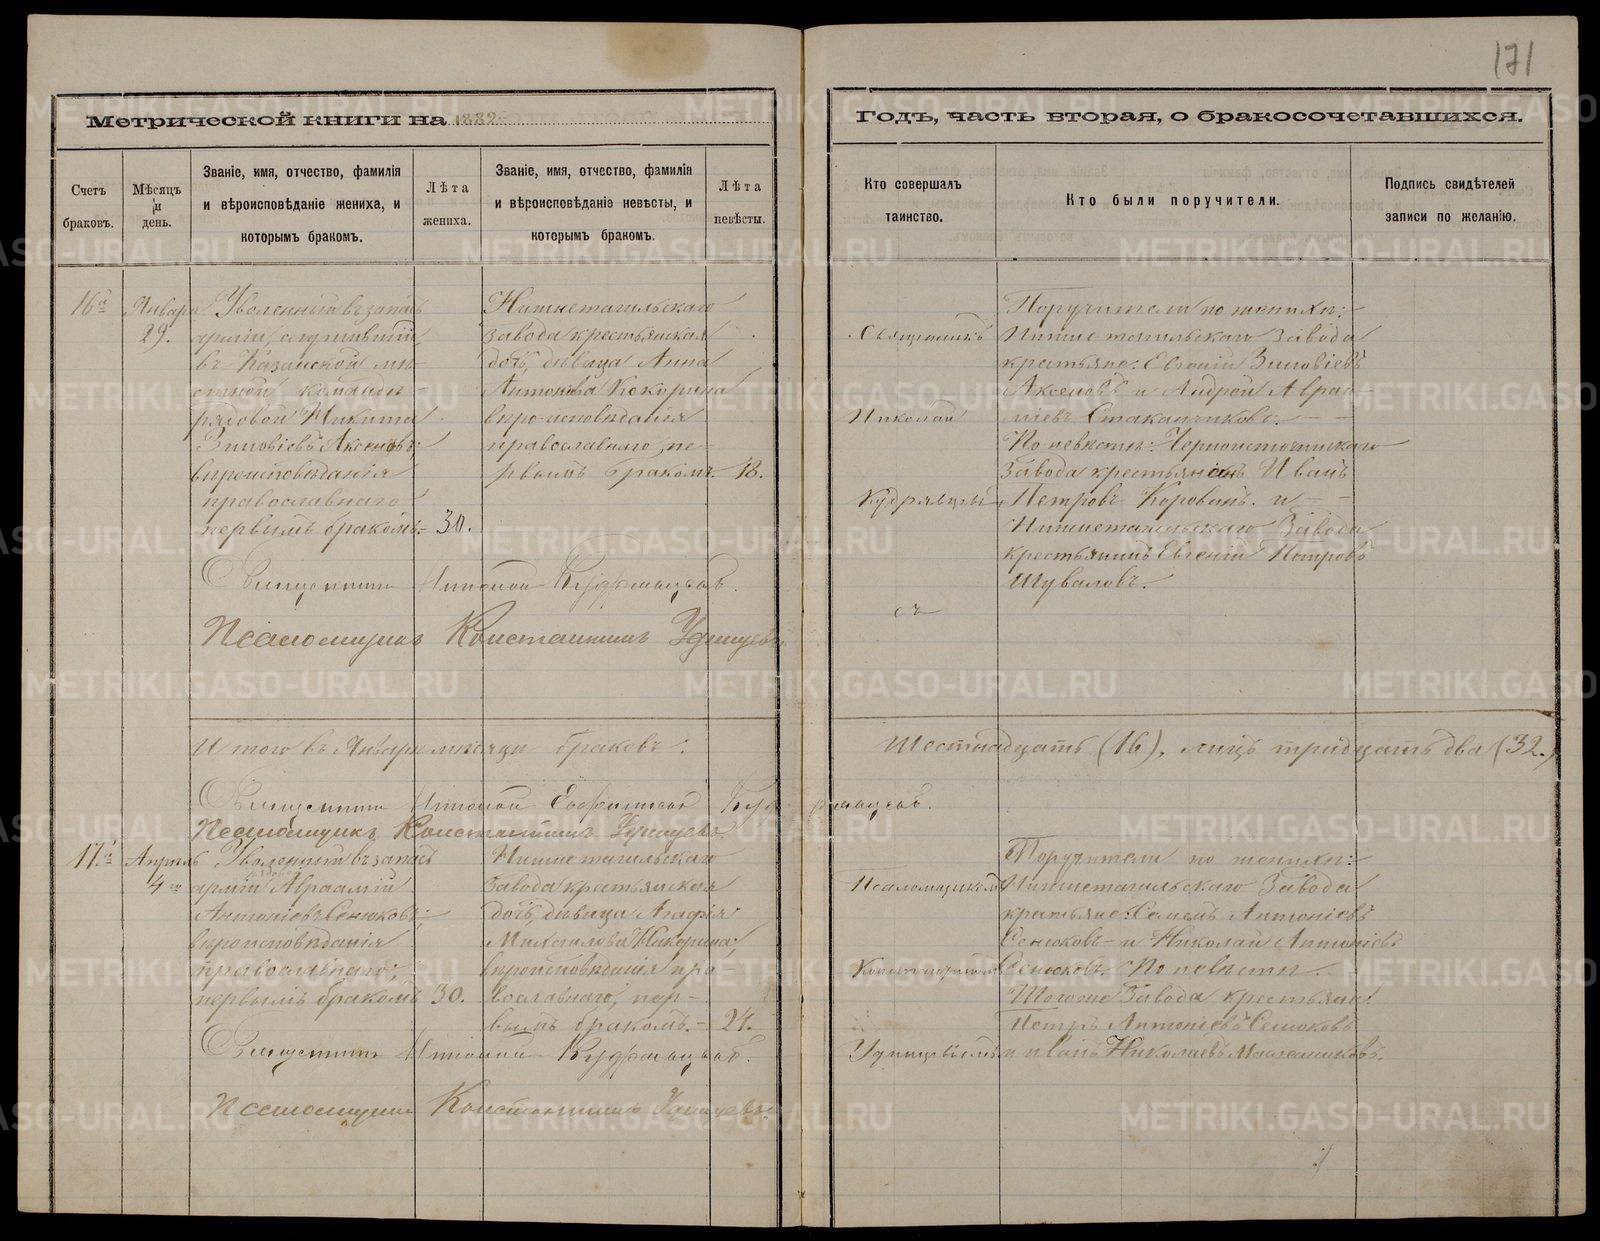 171
Метрической книги на 1882
Годъ, часть вторая, о бракосочетавшихся.
Счетъ браковъ.
Мѣсяцъ и день.
Званіе, имя, отчество, фамилія
и вѣроисповѣданіе жениха, и
которымъ бракомъ.
Лѣта
жениха.
Званіе, имя, отчество, фамилія
и вѣроисповѣданіе невѣсты, и
которымъ бракомъ.
Лѣта
невѣсты.
Кто совершалъ
таинство.
Кто были поручители.
Подпись свидѣтелей
записи по желанію.
16й
Января
29.
Уволенный въ запасъ
арміи, служившій
въ Казанской мѣ-
стной команды
рядовой Никита
Зиновіевъ Аксеновъ;
вѣроисповѣданія
православнаго
первымъ бракомъ.
30.
Нижнетагильскаго
завода крестьянская
дочь, дѣвица Анна
Антонова Кокорина
вѣроисповѣданія
православнаго, пе-
рвымъ бракомъ.
18.
Священникъ
Николай
Кудрявцевъ
съ
Поручители по женихѣ:
Нижнетагильскаго Завода
крестьяне: Евгеній Зиновіевъ
Аксеновъ и Андрей Авраа-
міевъ Стаканчиковъ.
По невѣстѣ: Черноисточинскаго
Завода крестьянинъ Иванъ
Петровъ Коровинъ и
Нижнетагильскаго Завода
крестьянинъ Евгеній Петровъ
Шуваловъ.
Священникъ Николай Кудрявцевъ.
Псаломщикъ Константинъ Удинцевъ.
Итого въ Январѣ мѣсяцѣ браковъ:
Шестнадцать (16), лицъ тридцать два (32.)
Священникъ Николай Кудрявцевъ.
Псаломщикъ Константинъ Удинцевъ.
17й
Апрѣль
4го
Уволенный въ запасъ
арміи Авраамій
Антоніевъ Сенюковъ;
вѣроисповѣданія
православнаго;
первымъ бракомъ
30.
Нижнетагильскаго
завода крестьянская
дочь, дѣвица Агафія
Михаилова
вѣроисповѣданія пра-
вославнаго, пер-
вымъ бракомъ.
21.
Псаломщикомъ
Константиномъ
Удинцевымъ
Поручители по женихѣ:
Нижнетагильскаго Завода
крестьяне: Семенъ Антоніевъ
Сенюковъ и Николай Антоніевъ
Сенюковъ. По невѣстѣ.
Тогоже Завода крестьяне:
Петръ Антоніевъ Сенюковъ
и Иванъ Николаевъ
Священникъ Николай Кудрявцевъ.
Псаломщикъ Константинъ Удинцевъ.
METRIKI.GASO-URAL.RU